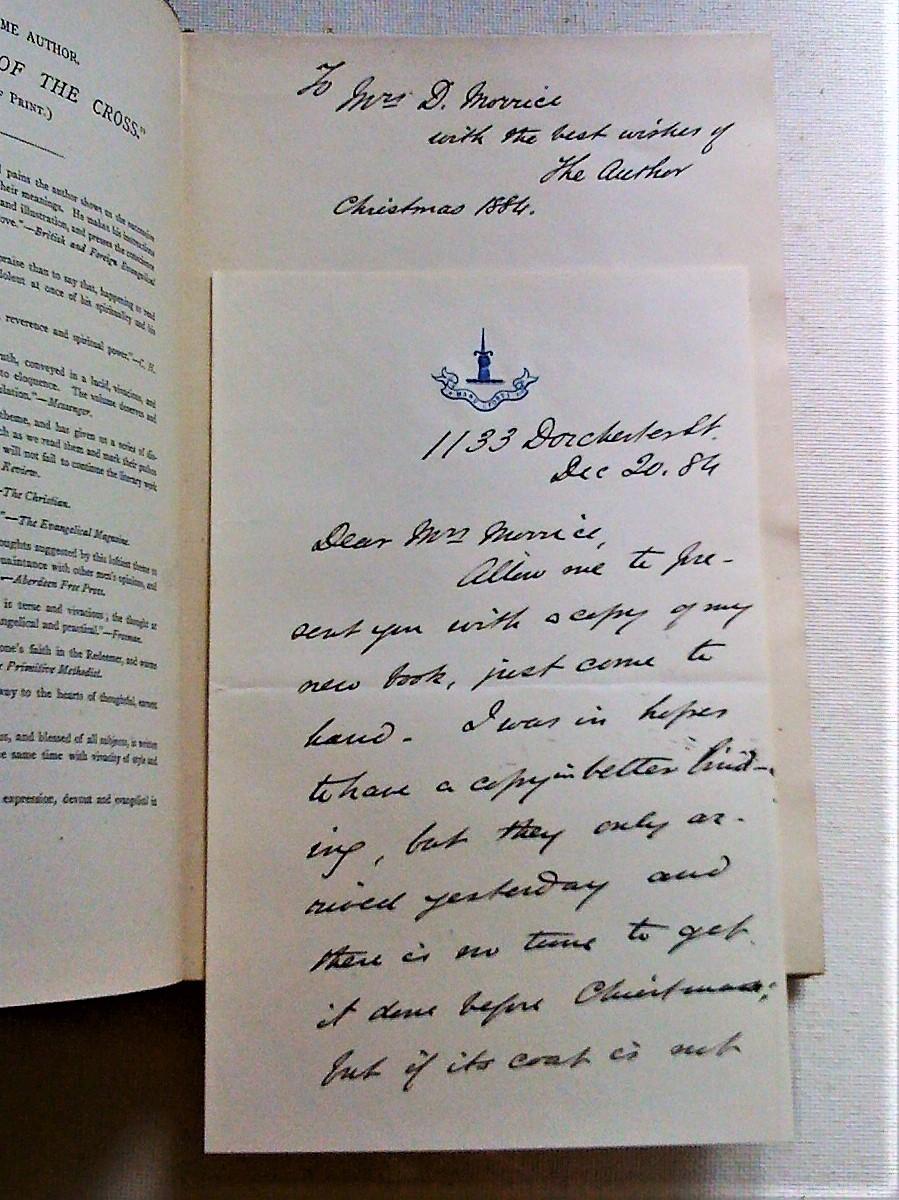 ME AUTHOR.
OF THE CROSS."
PRINT.)
pains the author shows us the successive
heir meanings. He makes his instructions
and illustration, and presses the conscience
ove."—British and Foreign Evangelical
praise than to say that, happening to read
dolent at once of his spirituality and his
reverence and spiritual power."—C. H.
ruth, conveyed in a lucid, vivacious, and
to eloquence. The volume deserves and
ulation."—Messenger.
theme, and has given us a series of dis-
ch as we read them and mark their pathos
will not fail to continue the literary work
Review.
—The Christian.
"—The Evangelical Magazine.
oughts suggested by this loftiest theme is
quaintance with other men's opinions, and
—Aberdeen Free Press.
is terse and vivacious; the thought at
ngelical and practical."—Freeman.
one's faith in the Redeemer, and warm
Primitive Methodist.
way to the hearts of thoughtful, earnest
and blessed of all subjects, is written
e same time with vivacity of style and
expression, devout and evangelical in
To
Mrs D. Morrice
with the best wishes of
The Author
Christmas 1884.
1133 Dorchester St.
Dec 20. 84
Dear Mrs Morrice,
Allow me to pre-
sent you with a copy of my
new book, just come to
hand. I was in hopes
to have a copy in better bind-
ing, but they only ar-
rived yesterday and
there is no time to get
it done before Christmas;
but if its coat is not